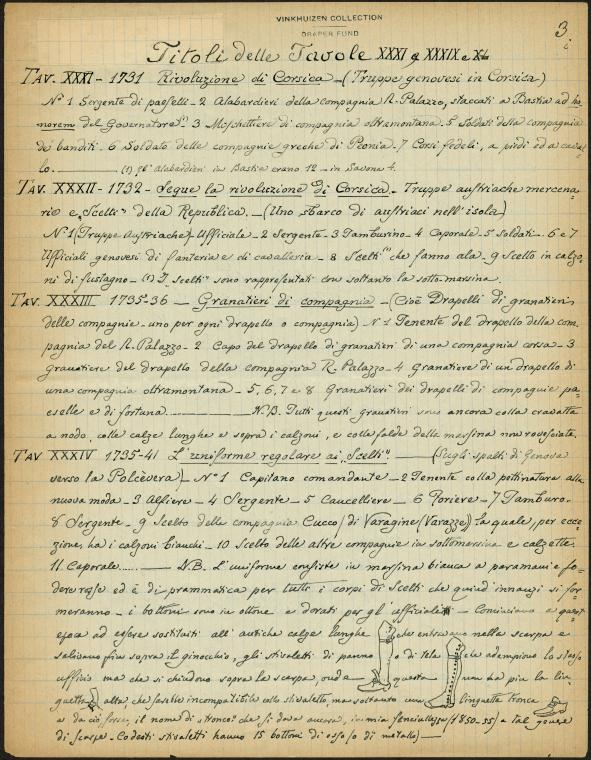 VINKHUIZEN COLLECTION
DRAPER FUND
3
Titoli delle Tavole XXXI a XXXIX e XL
TAV. XXXI - 1731 Rivoluzione di Corsica - (Truppe genovesi in Corsica)
N.º 1 Sergente di paesetti - 2 Alabardieri della compagnia R. Palazzo, staccati a Bastia ad ho=
norem del Governatore (1) 3 Moschettiere di compagnia oltramontana. 5 Soldati della compagnia
de' banditi. 6 Soldato delle compagnie greche di Peonia. 7 Corsi fedeli, a piedi ed a caval
lo. (1) gl' alabardieri in Bastia erano 12 - in Savona 4.
TAV. XXXII - 1732 - Segue la rivoluzione di Corsica. Truppe austriache mercena=
rie e „Scelti" della Republica. - (Uno sbarco di austriaci nell' isola)
Nº 1 (Truppe austriache) Ufficiale - 2 Sergente - 3 Tamburino - 4 Caporale - 5 Soldati - 6 e 7
Ufficiali genovesi di fanteria e di cavalleria - 8 Scelti (1) che fanno ala - 9 Scelto in calzo=
ni di fustagno - (1) I „scelti" sono rappresentati con soltanto la sotto-marsina.
TAV. XXXIII 1735-36 - Granatieri di compagnia - (Cioè Drapelli di granatieri
delle compagnie - uno per ogni drapello o compagnia) Nº 1 Tenente del drapello della com
pagnia del R. Palazzo - 2 Capo del drapello di granatieri di una compagnia corsa - 3
granatiere del drapello della compagnia R. Palazzo - 4 Granatiere di un drapello di
una compagnia oltramontana - 5, 6, 7 e 8 Granatieri dei drapelli di compagnie pa=
eselle e di fortuna. N.B. Tutti questi granatieri sono ancora colla cravatta
a nodo, colle calze lunghe e sopra i calzoni, e colle falde della marsina non rovesciate.
TAV XXXIV 1735-41 L'uniforme regolare ai „Scelti" - (Sugli spalti di Genova
verso la Polcèvera) - Nº 1 Capitano comandante - 2 Tenente colla pettinatura alla
nuova moda - 3 Alfiere - 4 Sergente - 5 Cancelliere - 6 Foriere - 7 Tamburo.
8 Sergente - 9 Scelto della compagnia Cucco (di Varagine (Varazze)) la quale, per ecce=
zione, ha i calzoni bianchi - 10 Scelto delle altre compagnie in sottomarsina e calzette
11 Caporale. NB. L'uniforme consiste in marsina bianca a paramani e fo=
dere rosse ed è di prammatica per tutti i corpi di Scelti che quind' innanzi si for=
meranno - i bottoni sono in ottone e dorati per gl' ufficiali - Cominciano a quest'
epoca ad essere sostituiti all' antiche calze lunghe che entravano nella scarpa e
salivano fin sopra il ginocchio, gli stivaletti di panno o di tela che adempiono lo stesso
ufficio ma che si chiudono sopra la scarpa, onde questa non ha più la lin=
guetta alta che sarebbe incompatibile collo stivaletto, ma soltanto una linguetta tronca
e da ciò, forse, il nome di stronco che si dava ancora, in mia fanciullezza (1850-55) a tal genere
di scarpe. Codesti stivaletti hanno 15 bottoni di osso (o di metallo)